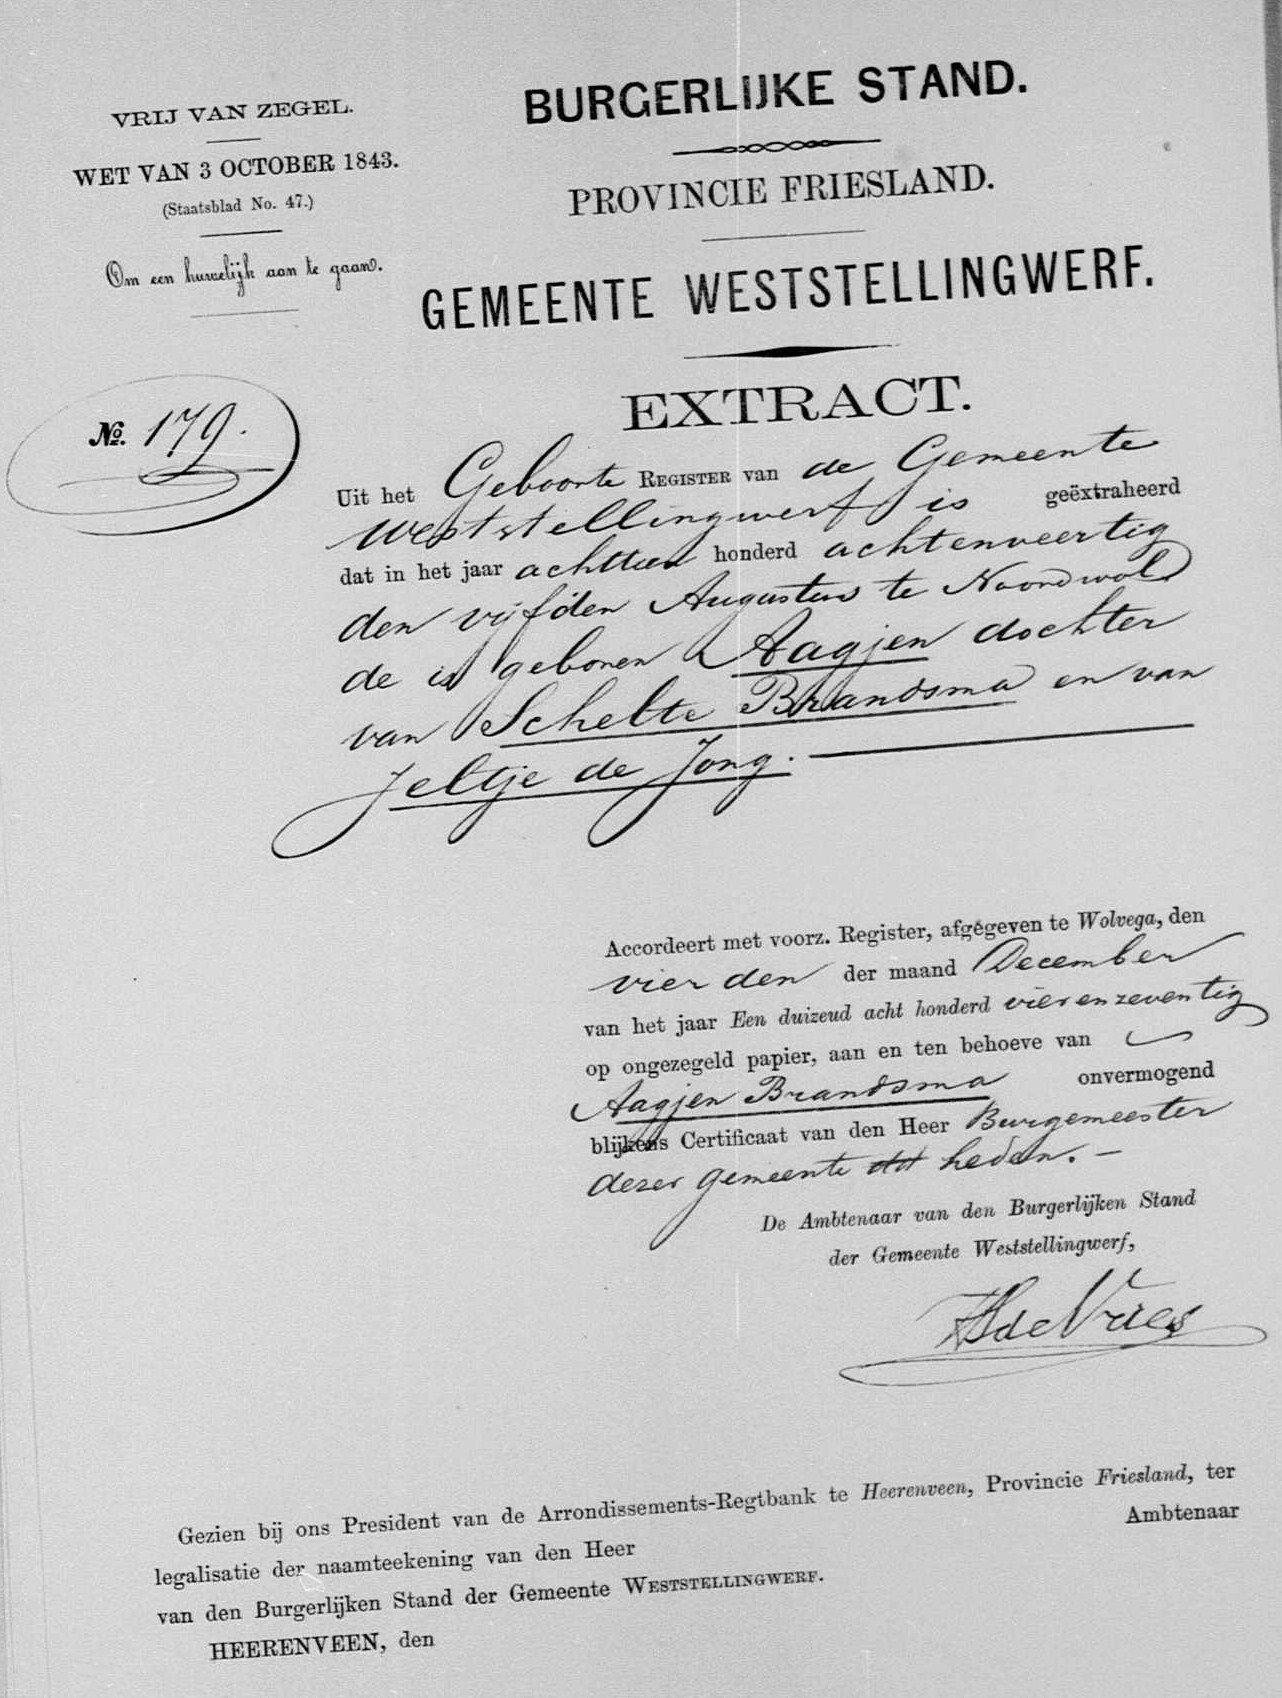 VRIJ VAN ZEGEL.
WET VAN 3 OCTOBER 1843.
(Staatsblad No. 47.)
Om een huwelijk aan te gaan.
No. 179.
BURGERLIJKE STAND.
PROVINCIE FRIESLAND.
GEMEENTE WESTSTELLINGWERF.
EXTRACT.
Uit het Geboorte REGISTER van de Gemeente
Weststellingwerf is geëxtraheerd
dat in het jaar achttien honderd achtenveertig
den vijfden Augustus te Noordwol
de is geboren Aagjen dochter
van Schelte Brandsma en van
Jeltje de Jong.
Accordeert met voorz. Register, afgegeven te Wolvega, den
vierden der maand December
van het jaar Een duizeud acht honderd vierenzeventig
op ongezegeld papier, aan en ten behoeve van
Aagjen Brandsma onvermogend
blijkens Certificaat van den Heer Burgemeester
dezer gemeente dd heden. —
De Ambtenaar van den Burgerlijken Stand
der Gemeente Weststellingwerf,
de Vries
Gezien bij ons President van de Arrondissements-Regtbank te Heerenveen, Provincie Friesland, ter
legalisatie der naamteekening van den Heer Ambtenaar
van den Burgerlijken Stand der Gemeente WESTSTELLINGWERF.
HEERENVEEN, den